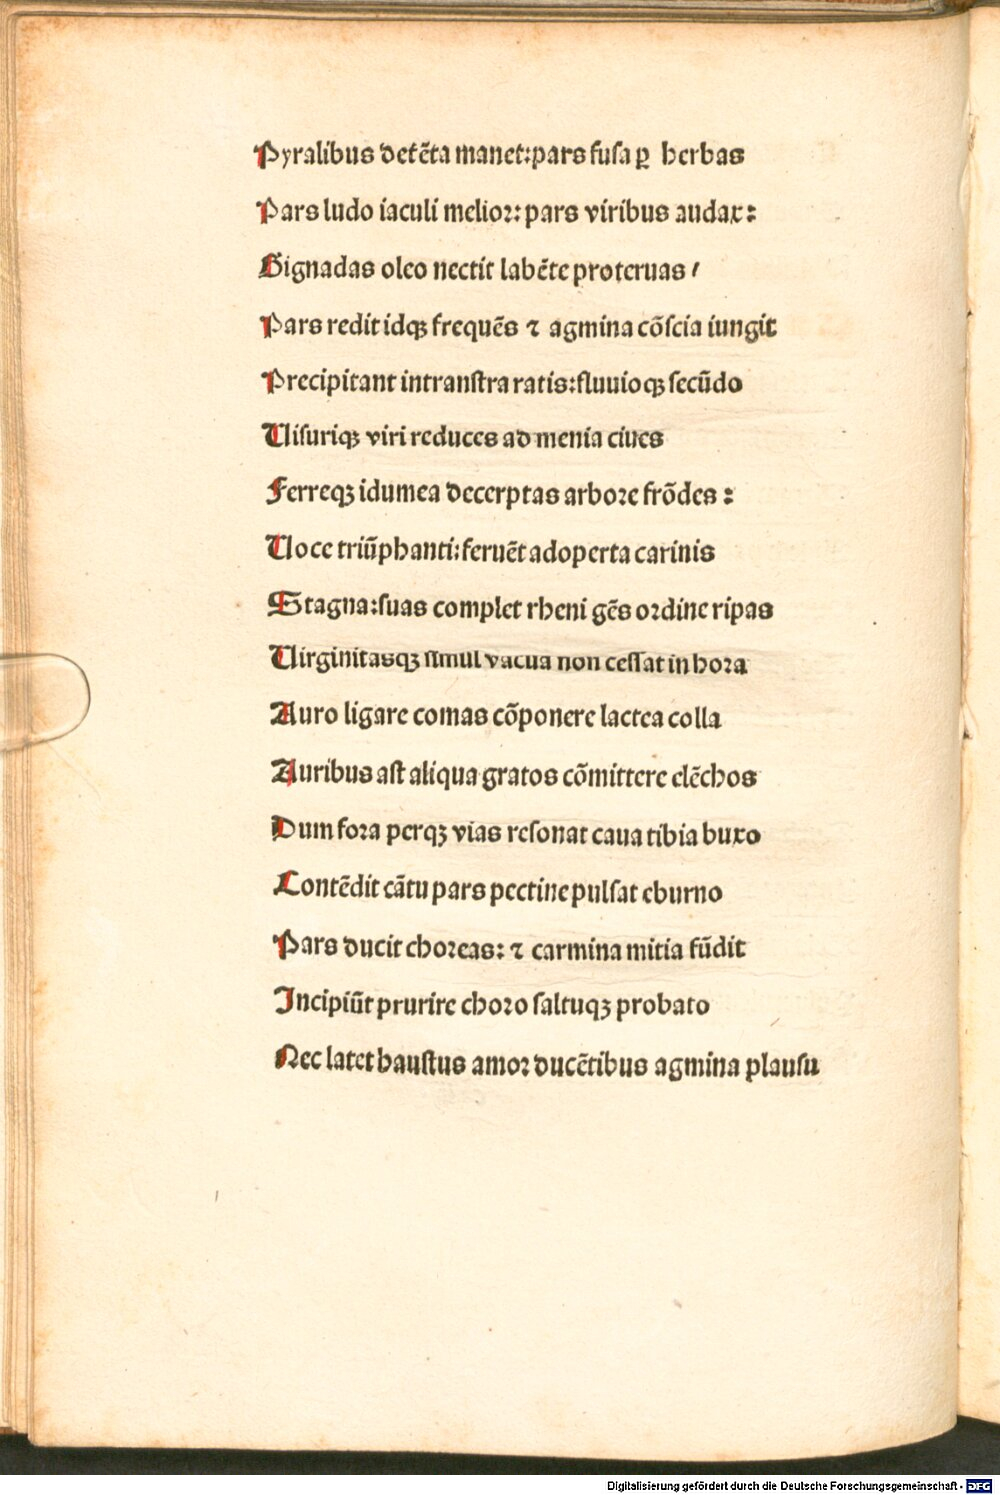 Pyralibus detēta manet:pars fusa ꝑ herbas
Pars ludo iaculi melioꝛ: pars viribus audax:
Gignadas oleo nectit labēte proteruas /
Pars redit idqꝫ frequēs ⁊ agmina cōscia iungit
Precipitant intranstra ratis:fluuioqꝫ secūdo
Uisuriqꝫ viri reduces ad menia ciues
Ferreqꝫ idumea decerptas arboꝛe frōdes :
Uoce triūphanti:feruēt adoperta carinis
Stagna:suas complet rheni gēs oꝛdine ripas
Uirginitasqꝫ simul vacua non cessat in hoꝛa
Auro ligare comas cōponere lactea colla
Auribus ast aliqua gratos cōmittere elēchos
Dum foꝛa perqꝫ vias resonat caua tibia buxo
Contēdit cātu pars pectine pulsat eburno
Pars ducit choꝛeas: ⁊ carmina mitia fūdit
Incipiūt prurire choꝛo saltuqꝫ probato
Nec latet haustus amoꝛ ducētibus agmina plausu
Digitalisierung gefördert durch die Deutsche Forschungsgemeinschaft - DFG